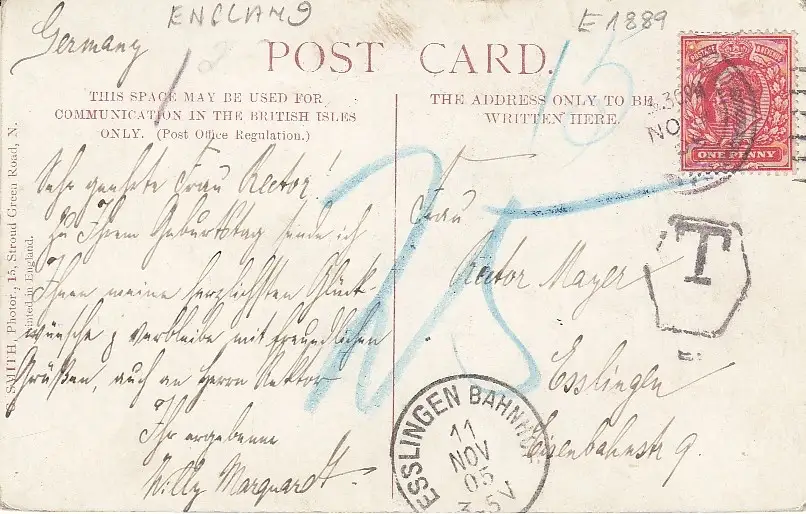 ENGLAND
E1889
Germany
POST CARD.
THIS SPACE MAY BE USED FOR
COMMUNICATION IN THE BRITISH ISLES
ONLY. (Post Office Regulation.)
THE ADDRESS ONLY TO BE
WRITTEN HERE.
15
POSTAGE
ONE PENNY
NO
T
25
Sehr geehrte Frau Rector!
Zu Ihrem Geburtstag sende ich
Ihnen meine herzlichsten Glück-
wünsche & verbleibe mit freundlichen
Grüßen, auch an Herrn Rektor
Ihr ergebener
Willy Marquardt.
Frau
Rector Mayer
Esslingen
Eisenbahnstr 9.
ESSLINGEN BAHNHOF
11
NOV
05
3-5 V
SMITH, Photor., 15, Stroud Green Road, N.
Printed in England.